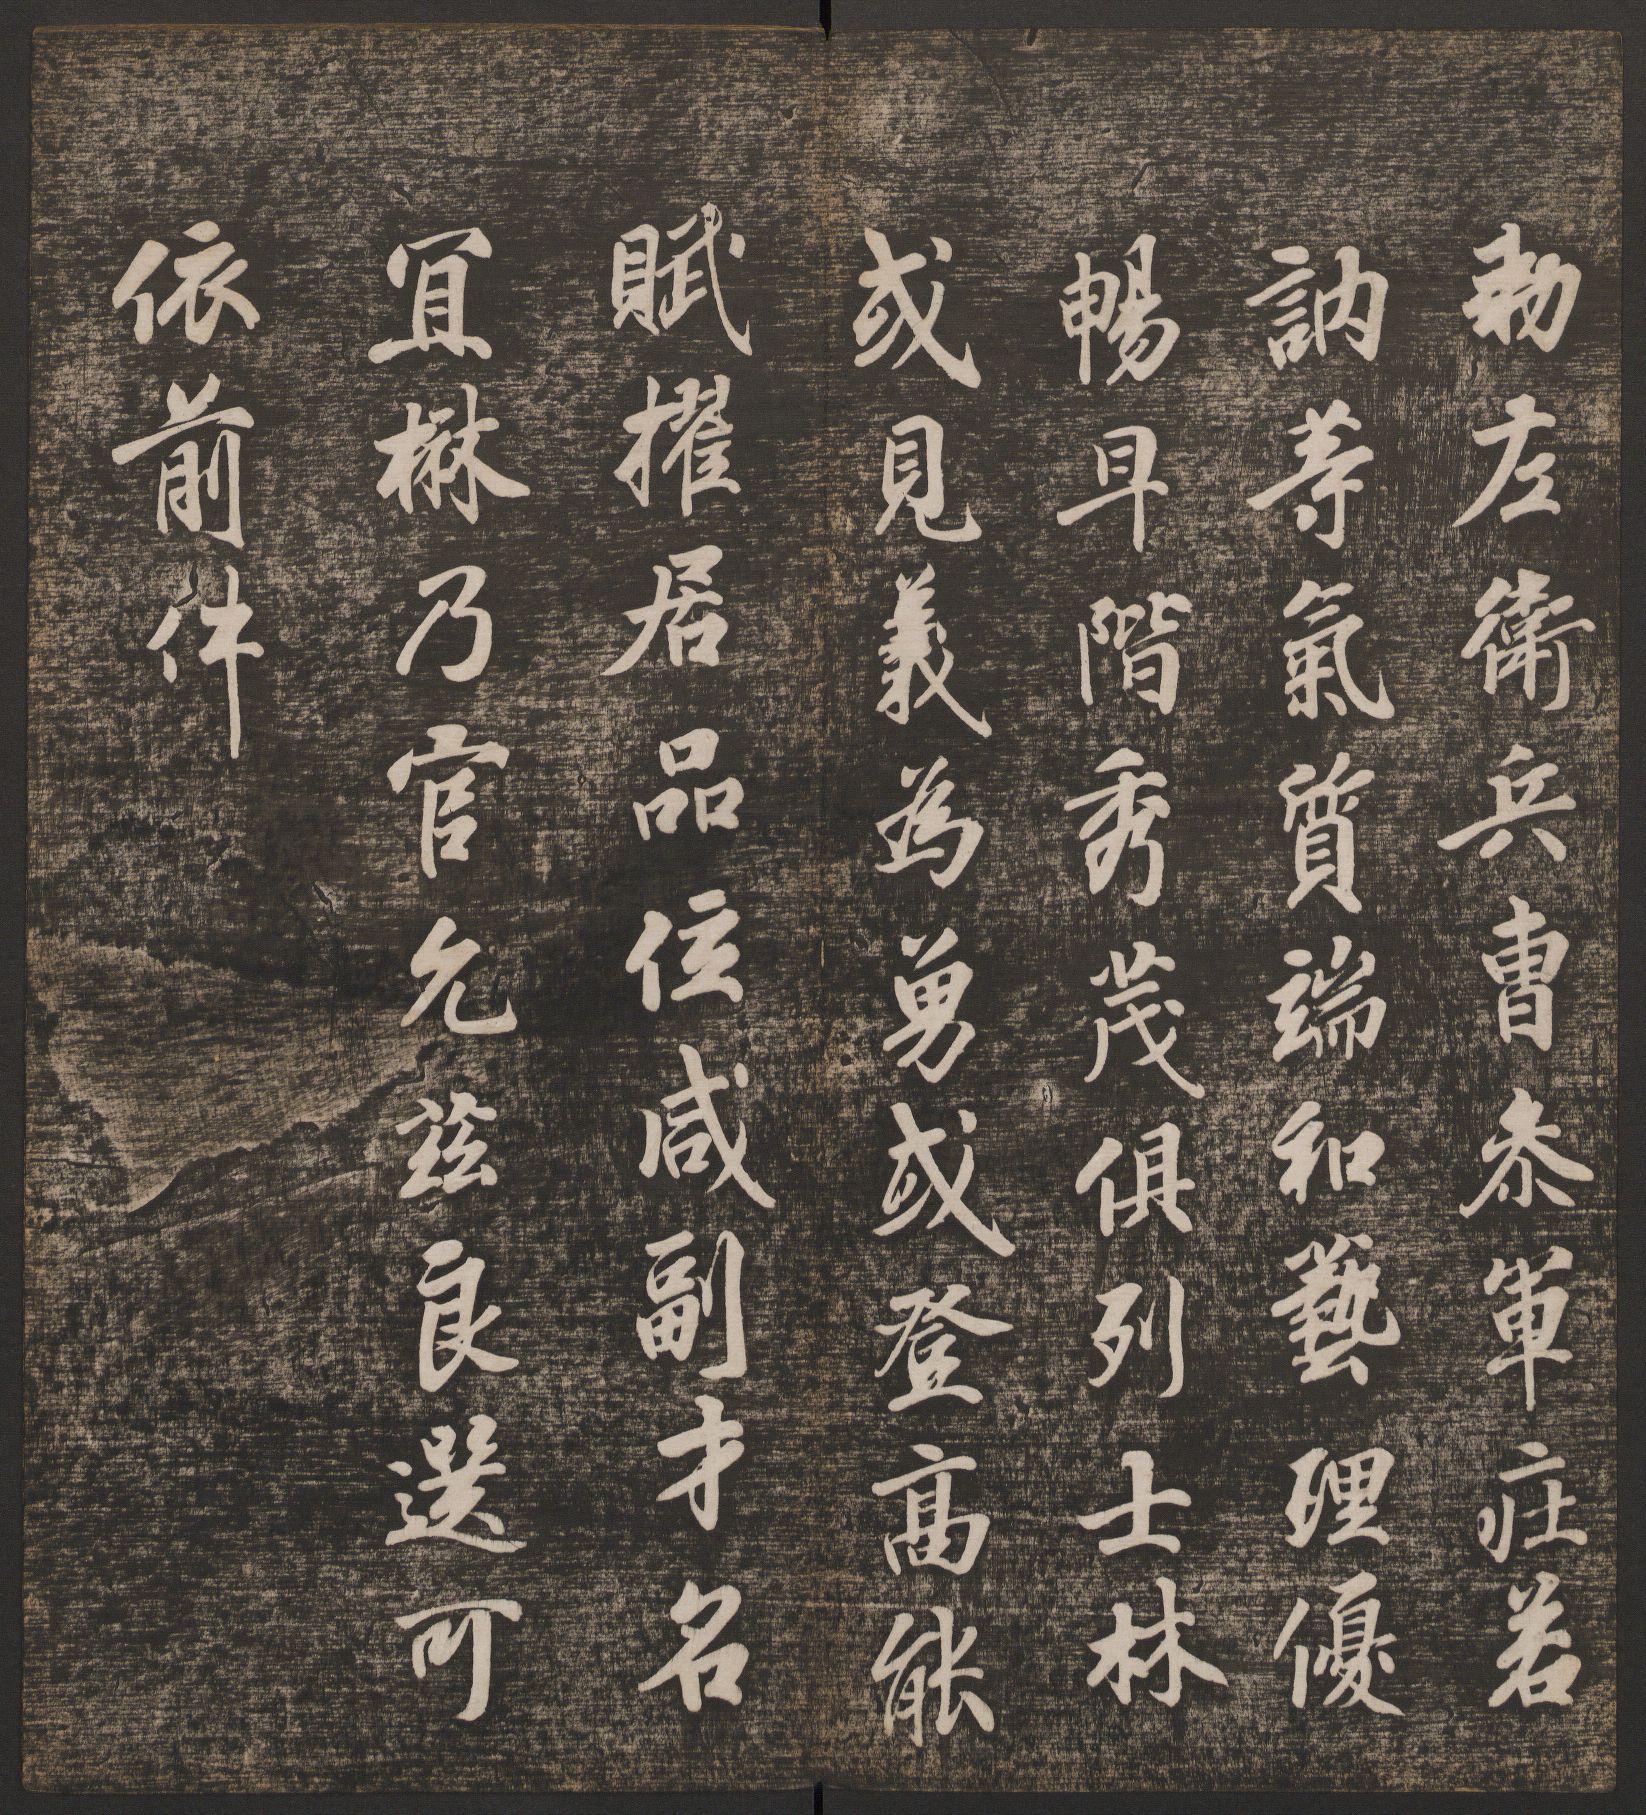 勑左衛兵曹叅軍庄若
訥等氣質端和藝理優
暢早階秀茂俱列士林
或見義為勇或登高能
賦擢居品位咸副才名
宜楙乃官允茲良選可
依前件